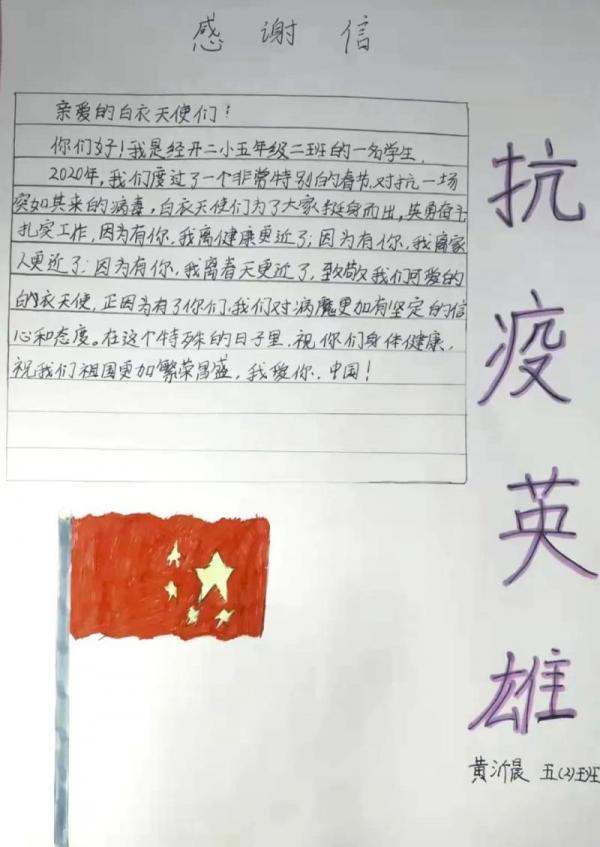 感谢信
亲爱的白衣天使们！
你们好！我是经开二小五年级二班的一名学生.
2020年，我们度过了一个非常特别的春节.对抗一场
突如其来的病毒，白衣天使们为了大家挺身而出，英勇奋斗
扎实工作，因为有你，我离健康更近了；因为有你，我离家
人更近了；因为有你，我离春天更近了，致敬我们可爱的
白衣天使，正因为有了你们，我们对病魔更加有坚定的信
心和态度。在这个特殊的日子里，祝你们身体健康，
祝我们祖国更加繁荣昌盛，我爱你、中国！
抗
疫
英
雄
黄沂晨 五(2)班